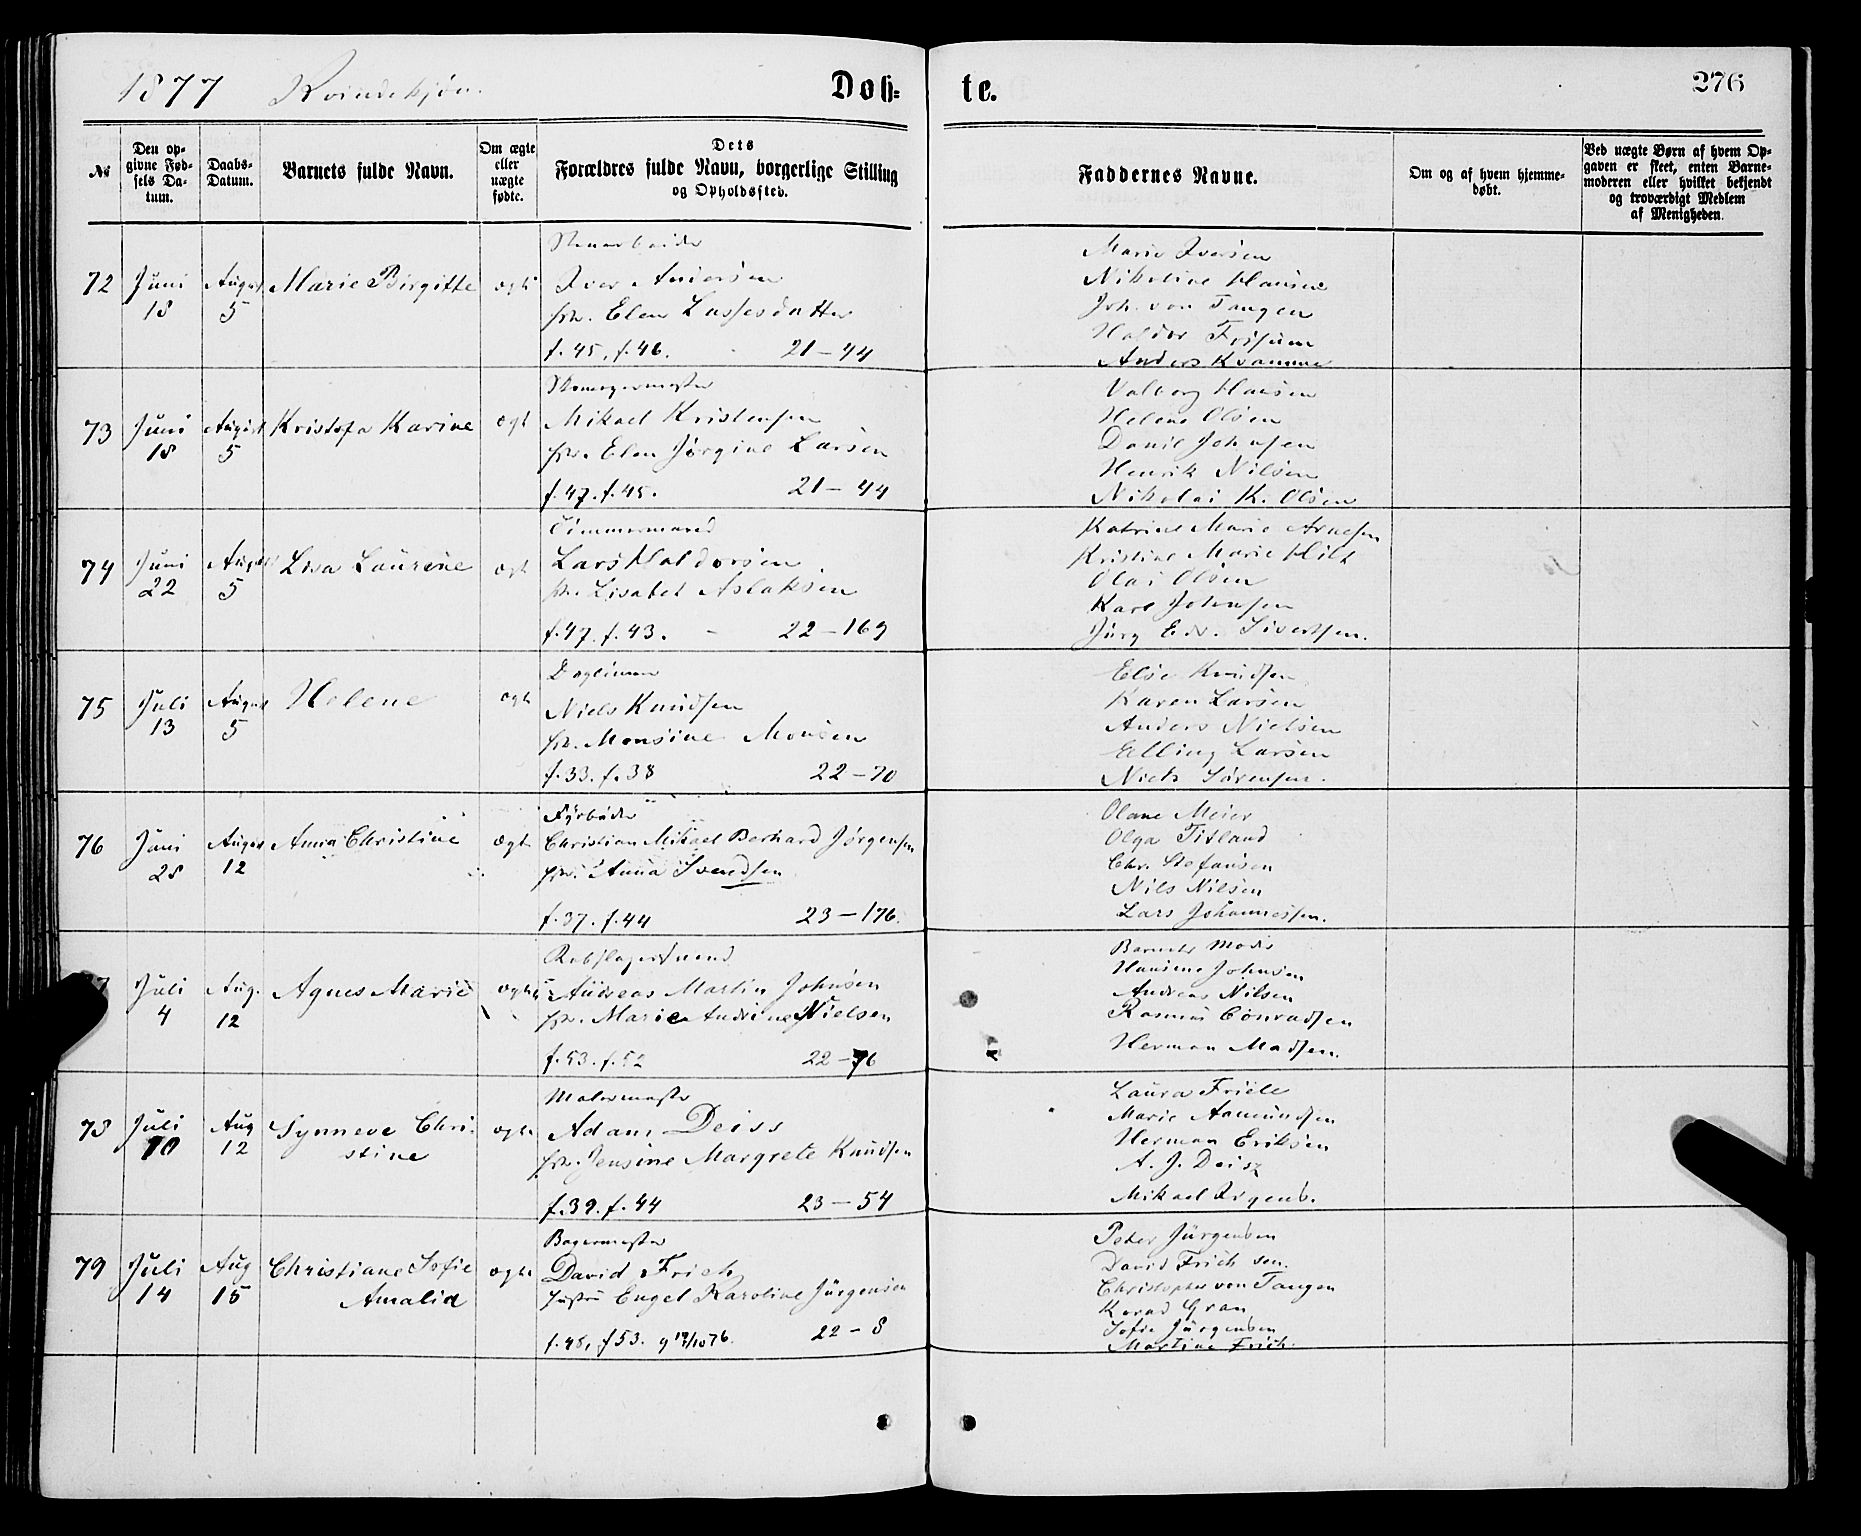 1877 Kvindekjøn.
Døb-
te.
276
№
Den op-
givne Fød-
sels Da-
tum.
Daabs-
Datum.
Barnets fulde Navn.
Om ægte
eller
uægte
fødte.
Dets
Forældres fulde Navn, borgerlige Stilling
og Opholdssted.
Faddernes Navne.
Om og af hvem hjemme-
døbt.
Ved uægte Børn af hvem Op-
gaven er skeet, enten Barne-
moderen eller hvilket bekjendt
og troværdigt Medlem
af Menigheden.
72
Juni
18
August
5
Marie Birgitte
ægte
Stenarbeider
Iver Andersen
Elen Lassesdatter
f. 45, f. 46. 21–44
Marie Iversen
Nikoline Hansen
Joh. von Tangen
Haldor
Anders Kvamme
73
Juni
18
August
5
Kristofa Karine
ægt
Skomagermester
Mikael Kristensen
Elen Jørgine Larsen
f. 47. f. 45. 21–44
Valborg Hansen
Helene Olsen
Daniel Johnsen
Henrik Nilsen
Nikolai K. Olsen
74
Juni
22
August
5
Lisa Laurene
ægt
Tømmermand
Lars Haldorsen
Lisabet Aslaksen
f. 47. f. 43. 22–169
Katrine Marie Arnesen
Kristine Marie Hilt
Olai Olsen
Karl Johnsen
Jürg Edv. Sivertsen.
75
Juli
13
August
5
Helene
ægt
Dagleier
Niels Knudsen
Monsine Monsen
f. 33. f. 38 22–70
Else Knudsen
Karen Larsen
Anders Nielsen
Elling Larsen
Niels Sørensen.
76
Juni
28
August
12
Anna Christine
ægt
Fyrbøder
Christian Mikael Berhard Jørgensen
Anna Svendsen
f. 37. f. 44 23–176.
Olane Meier
Olga Titland
Chr. Stefansen
Nils Nilsen
Lars Johannessen.
77
Juli
4
Aug.
12
Agnes Marie
ægte
Rebslagersvend
Andreas Martin Johnsen
Marie Andrine Nielsen
f. 53. f. 52 22–76
Barnets Moder
Hansine Johnsen
Andreas Nilsen
Rasmus Conradsen
Herman Madsen.
78
Juli
10
Aug
12
Synneve Chri-
stine
ægte
Malermester
Adam Deiss
Jensine Margrete Knudsen
f. 39. f. 44 23–54
Laura Friele
Marie Aamundsen
Herman Eriksen
A. J. Deisz
Mikael
79
Juli
14
Aug
15
Christiane Sofie
Amalia
ægte
Bagermester
David Frich
Hustru Engel Karoline Jürgensen
f. 48, f 53. 22–8
Peter Jürgensen
David Frich sen.
Christopher von Tangen
Konrad Gran
Sofie Jürgensen
Martine Frich.